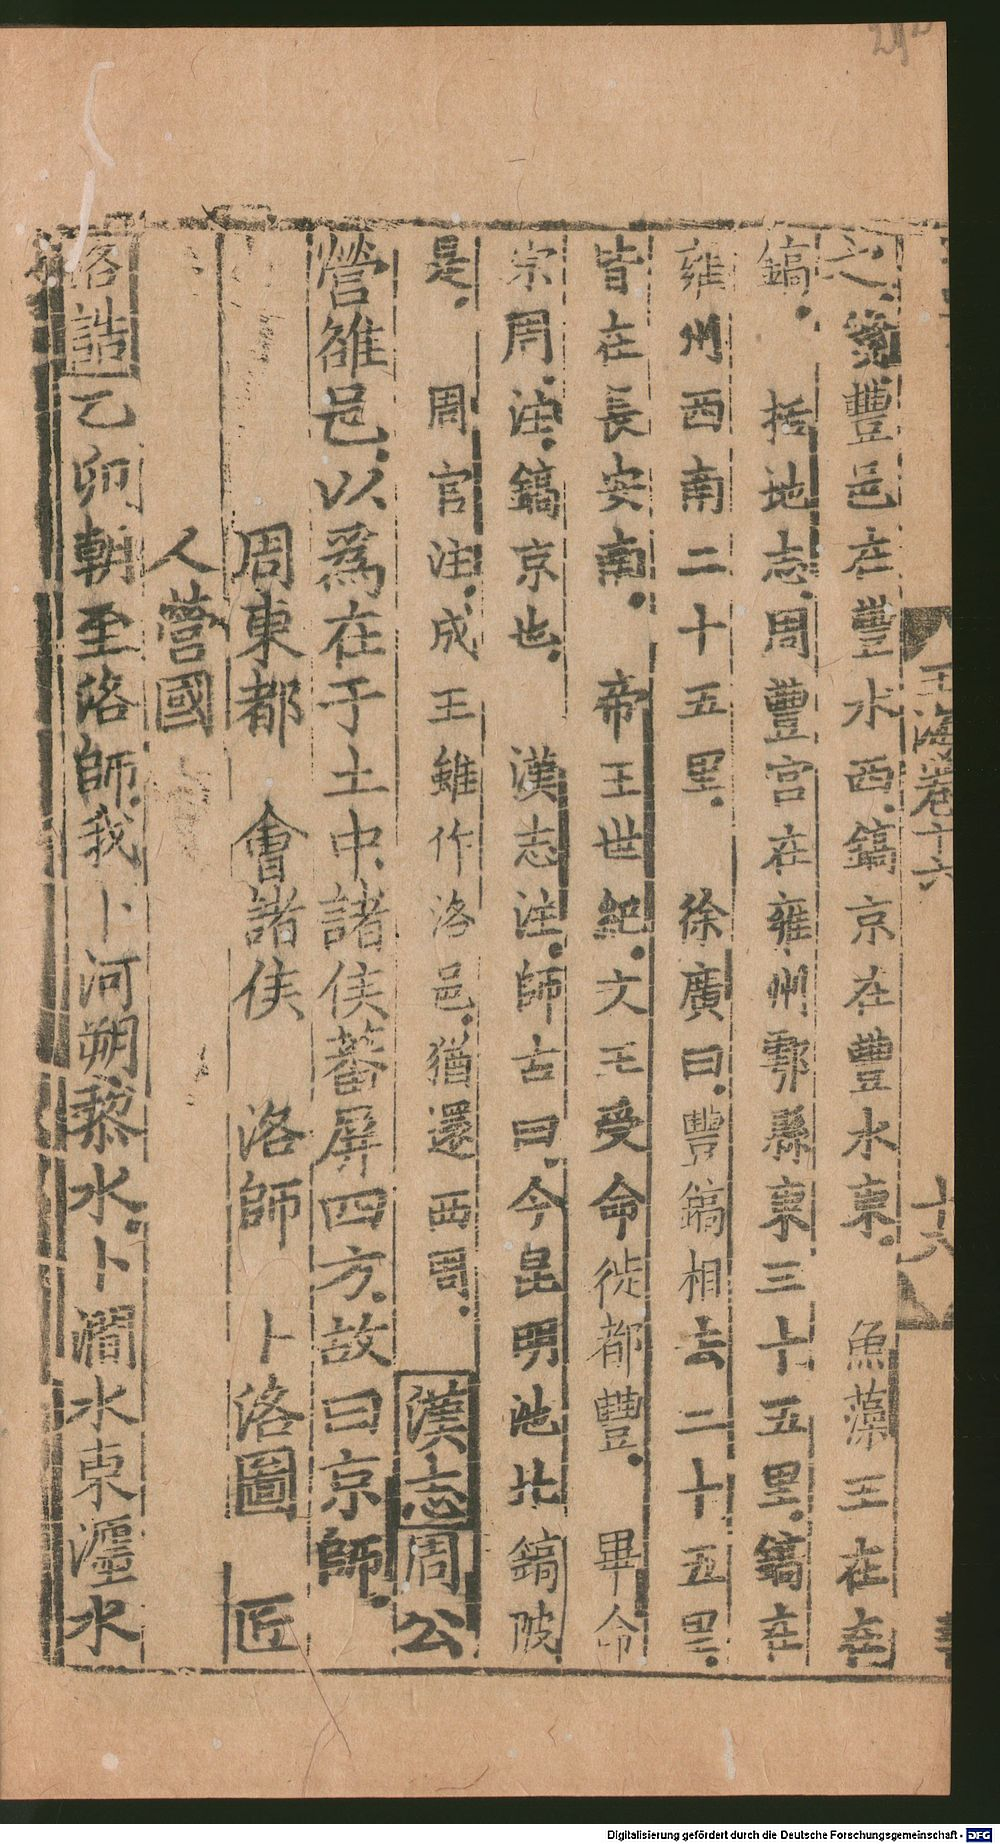 玉海卷十六
十八
之箋豐邑在豐水西鎬京在豐水東 魚藻王在在
鎬 括地志周豐宮在雍州鄠縣東三十五里鎬在
雍州西南二十五里 徐廣曰豐鎬相去二十五里
皆在長安南 帝王世紀文王受命徙都豐 畢命
宗周注鎬京也 漢志注師古曰今昆明池北鎬陂
是 周官注成王雖作洛邑猶還西周 漢志周公
營雒邑以爲在于土中諸侯蕃屏四方故曰京師
周東都 會諸侯 洛師 卜洛圖 匠
人營國
洛誥乙卯朝至洛師我卜河朔黎水卜澗水東瀍水
Digitalisierung gefördert durch die Deutsche Forschungsgemeinschaft - DFG